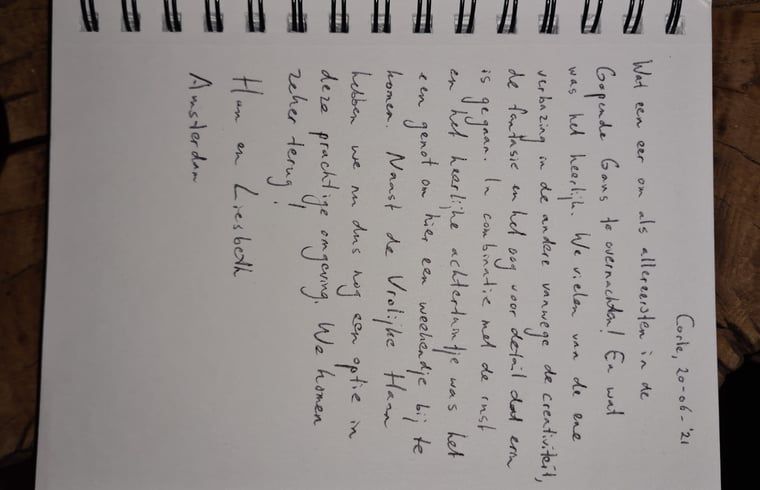 Corle, 20-06-'21
Wat een eer om als allereersten in de
Gapende Gans te overnachten! En wat
was het heerlijk. We vielen van de ene
verbazing in de andere vanwege de creativiteit,
de fantasie en het oog voor detail dat erin
is gegaan. In combinatie met de rust
en het heerlijke achtertuintje was het
een genot om hier een weekendje bij te
komen. Naast de Vrolijke Haan
hebben we nu dus nog een optie in
deze prachtige omgeving. We komen
zeker terug!
Han en Liesbeth
Amsterdam